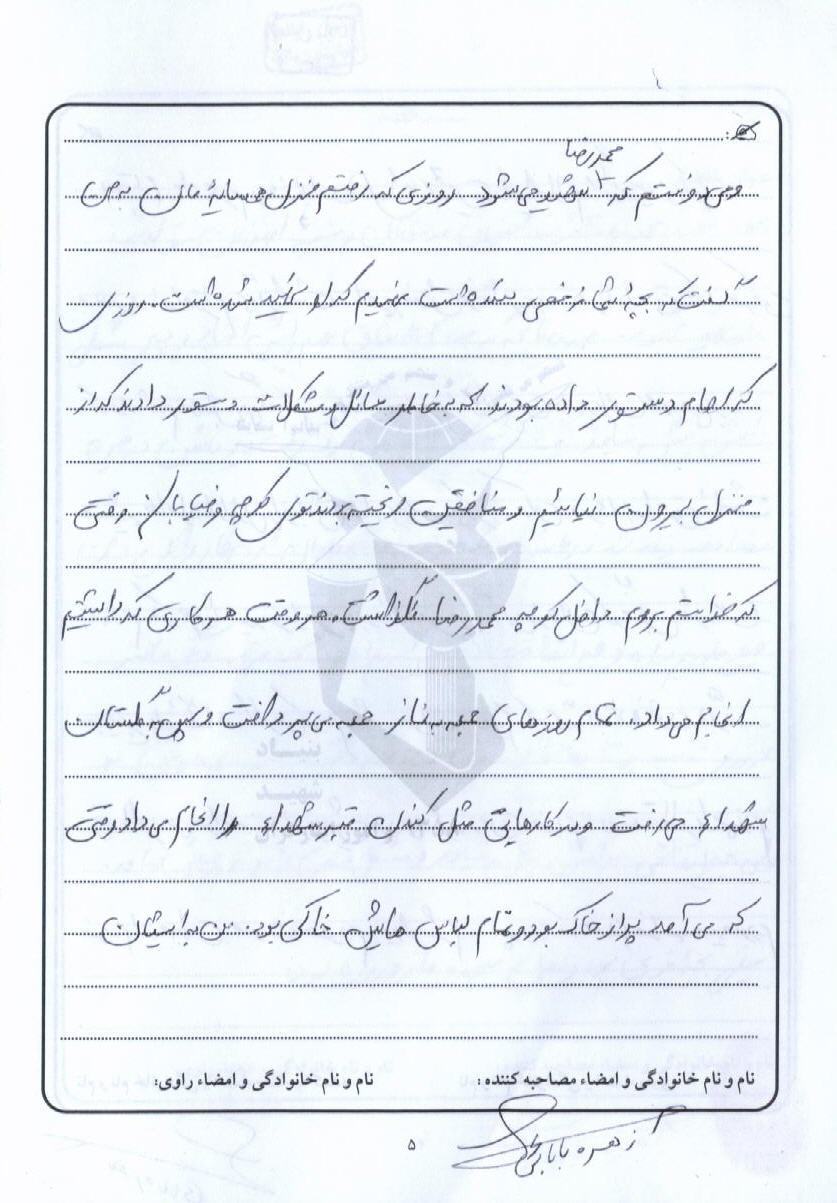 محمدرضا
می دونستم که شهید می شود روزی که رفتم منزل همسایه مان به من
گفت که بچه شما زخمی شده است فهمیدم که او شهید شده است. روزی
که امام دستور داده بودند که به خاطر مسائل و مشکلات دستور دادند که از
منزل بیرون نیائیم و منافقین ریخته بودند توی کوچه و خیابان / وقتی
که خواستم بروم داخل کوچه محمدرضا نگذاشت. هر وقت هر کاری که داشتیم
انجام می داد. تمام روزهای جمعه به نماز جمعه می پرداخت و سپس به گلستان
شهداء می رفت و در کارهایی مثل کندن قبر شهداء را انجام می داد وقتی
که می آمد پر از خاک بود و تمام لباس هایش خاکی بود. من به ایشان
نام و نام خانوادگی و امضاء مصاحبه کننده : نام و نام خانوادگی و امضاء راوی:
زهره بابایی
۵
بنیاد
شهید